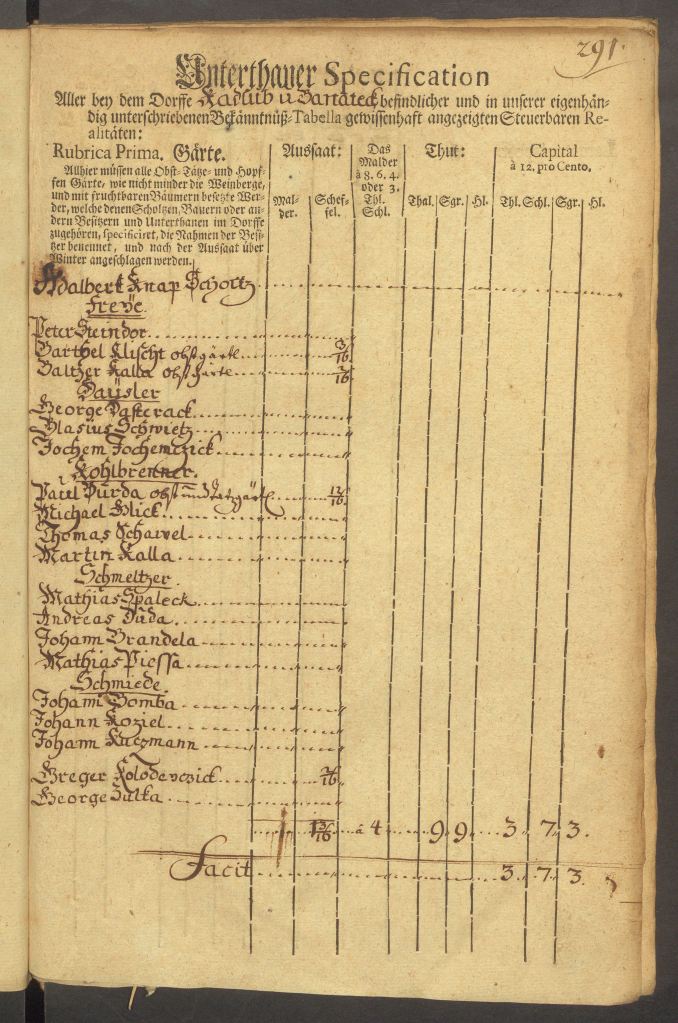 291.
Unterthaner Specification
Aller bey dem Dorffe Radlub u befindlicher und in unserer eigenhän-
dig unterschriebenen Bekänntnüß-Tabella gewissenhaft angezeigten Steuerbaren Re-
alitäten:
Rubrica Prima. Gärte.
Allhier müssen alle Obst- Tätze- und Hopf-
fen Gärte, wie nicht minder die Weinberge,
und mit fruchtbaren Bäumern besetzte Wer-
der, welche denen Scholtzen, Bauern oder an-
dern Besitzern und Unterthanen im Dorffe
zugehören, specificiret, die Nahmen der Besi-
tzer benennet, und nach der Aussaat über
Winter angeschlagen werden.
Aussaat:
Mal-
der.
Schef-
fel.
Das
Malder
à 8. 6. 4.
oder 3.
Thl.
Schl.
Thut:
Thal. Sgr. Hl.
Capital
à 12. pro Cento.
Thl. Schl. Sgr. Hl.
Adalbert Knap Scholtz
Freye.
Peter Steindor
Barthel Klischt obstgärtl 3/16
Balther Kalla obstgärtl 2/16
Häusler
George Pasterack
Blasius Schwietz
Jochem Jochemczick
Kohlbrenner.
Paul Durda obst und tatzgärtl 12/16
Michael Glick
Thomas Schawel
Martin Kalla
Schmeltzer.
Mathias Spaleck
Andreas Duda
Johann Brandela
Mathias Piessa
Schmiede.
Johann Bomba
Johann Koziel
Johann Kuczmann
Greger Kolodeyczick 2/16
George Zulka
1 3/16 à 4 9 9 3 7 3.
Facit 3 7 3.